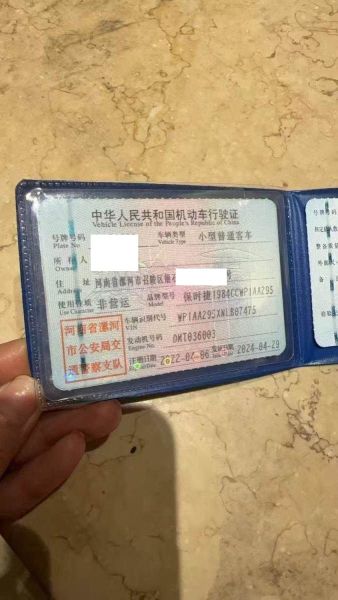 中华人民共和国机动车行驶证
Vehicle License of the People's Republic of China
号牌号码 车辆类型 小型普通客车
Plate No. Vehicle Type
所有人
Owner
住址 河南省漯河市召陵区
Address
使用性质 非营运 品牌型号 保时捷1984CCWP1AA295
Use Character
车辆识别代号 WP1AA295XNLB07475
VIN
发动机号码 DMT036003
Engine No.
注册日期 2022-07-06 发证日期 2024-04-29
河南省漯河
市公安局交
通警察支队
号牌号码